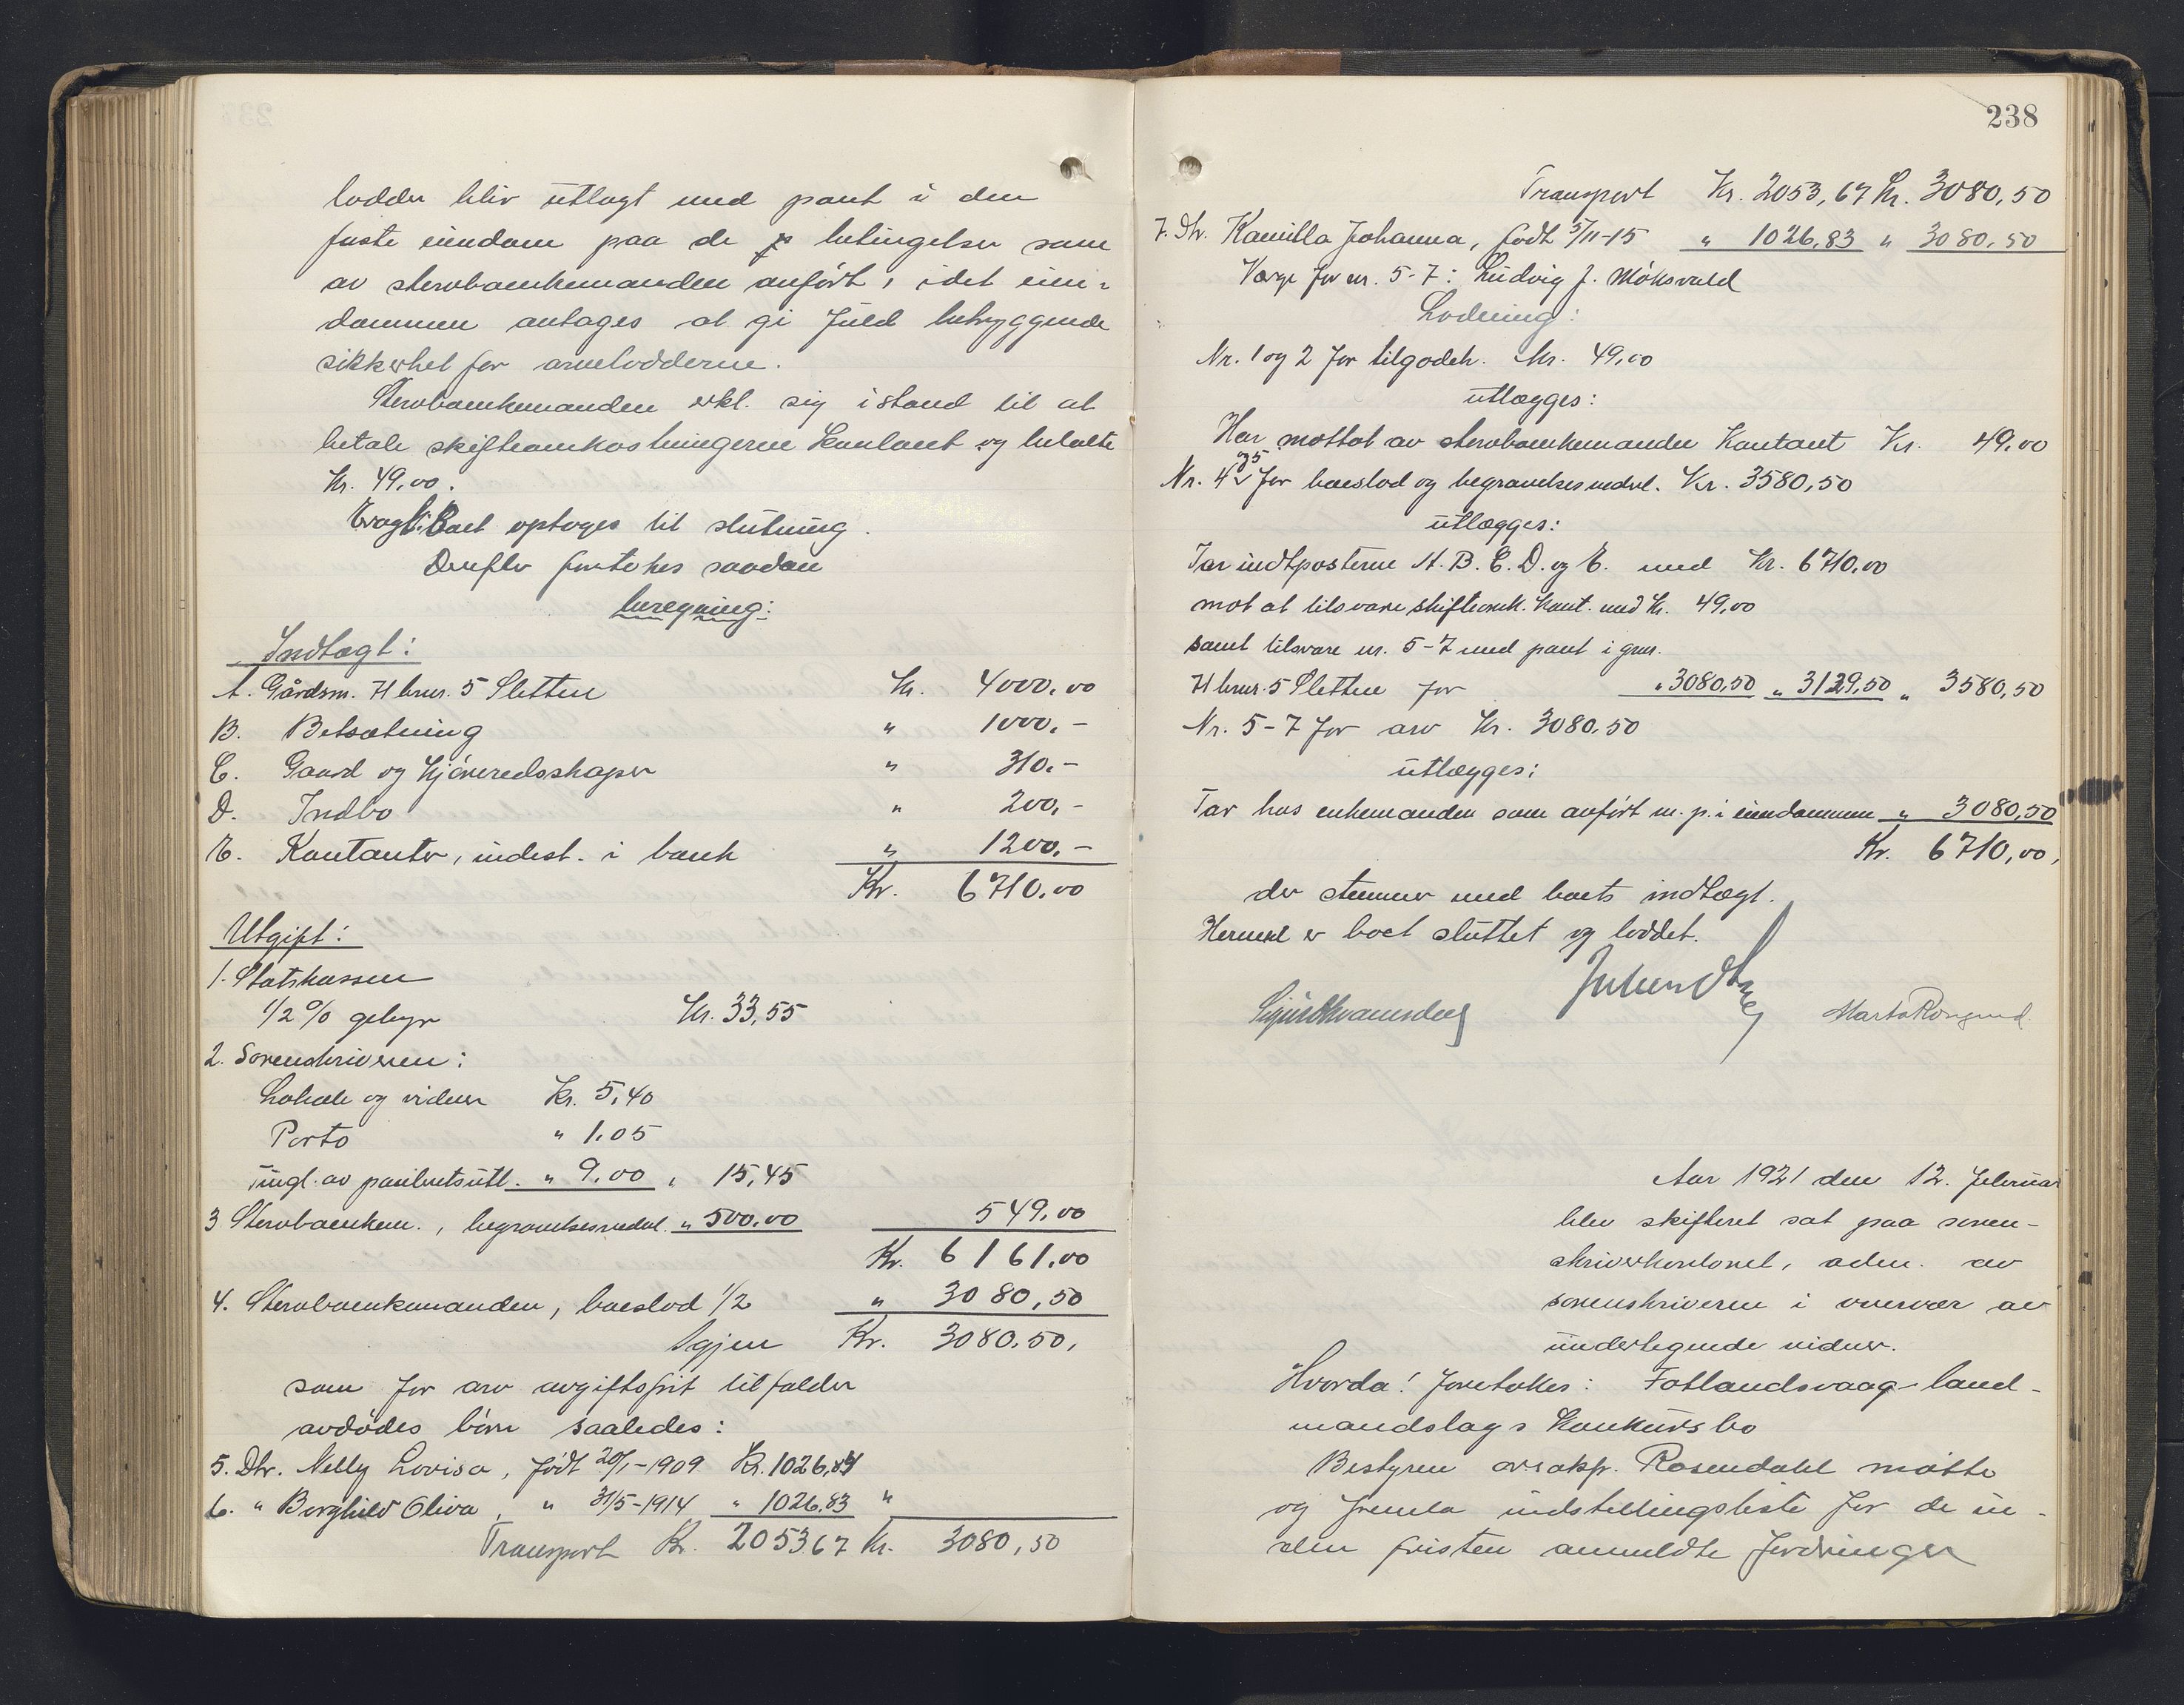 lodder bliv utlagt med pant i den
faste eiendom paa de betingelser som
av stervboenkemanden anført, idet eien-
dommen antages at gi fuld betryggende
sikkerhet for arvelodderne.
Stervboenkemanden erkl. sig istand til at
betale skifteomkostningerne kontant og betalte
Kr. 49,00.
Boet optoges til slutning.
Derefter foretokes saadan
beregning:
Indtægt:
A. Gårdsm. 71 brnr. 5 Sletten Kr. 4000,00
B. Besætning " 1000,-
C. Gaard og kjøreredskaper " 310,-
D. Indbo " 200,-
E. Kontanter, indest. i bank " 1200,-
Kr. 6710,00
Utgift:
1. Statskassen
1/2 % gebyr Kr. 33,55
2. Sorenskriveren:
Lokale og vidner Kr. 5,40
Porto " 1,05
Tingl. av panteutl. " 9,00 " 15,45
3 Stervboenkem., begravelsesvederl. " 500,00 549,00
Kr. 6161,00
4. Stervboenkemanden, boeslod 1/2 " 3080,50
Igjen Kr. 3080,50,
som for arv avgiftsfrit tilfalder
avdødes børn saaledes:
5. Dtr. Nelly Lovisa, født 20/1-1909 Kr. 1026,84
6. " Borghild Oliva, " 31/5-1914 " 1026,83 "
Transport Kr. 2053,67 Kr. 3080,50
238
Transport Kr. 2053,67 Kr. 3080,50
7. Dtr. Kamilla Johanna, født 5/11-15 " 1026,83 " 3080,50
Værge for nr. 5-7: Ludvig J. Møksvold
Lodning:
Nr. 1 og 2 for tilgodeh. Kr. 49,00
utlægges:
Har mottat av stervboenkemanden Kontant Kr. 49,00
Nr. 4 og 5 for boeslod og begravelsesvederl. Kr. 3580,50
utlægges:
Tar indtposterne A. B. C. D. og E. med Kr. 6710,00
mot at tilsvare skifteomk. kont. med Kr. 49,00
samt tilsvare nr. 5-7 med pant i gnr.
71 brnr. 5 Sletten for " 3080,50 " 3129,50 " 3580,50
Nr. 5-7 for arv Kr. 3080,50
utlægges:
Tar hos enkemanden som anført m. p. i eiendommen " 3080,50
Kr. 6710,00,
der stemmer med boets indtægt.
Hermed er boet sluttet og loddet.
Aar 1921 den 12. februar
blev skifteret sat paa soren-
skriverkontoret, adm. av
sorenskriveren i overvær av
undertegnede vidner.
Hvorda! foretokes: Fotlandsvaag land-
mandslags konkursbo
Bestyren overaksp. Rosendahl møtte
og fremla indstillingsliste for de in-
den fristen anmeldte fordringer